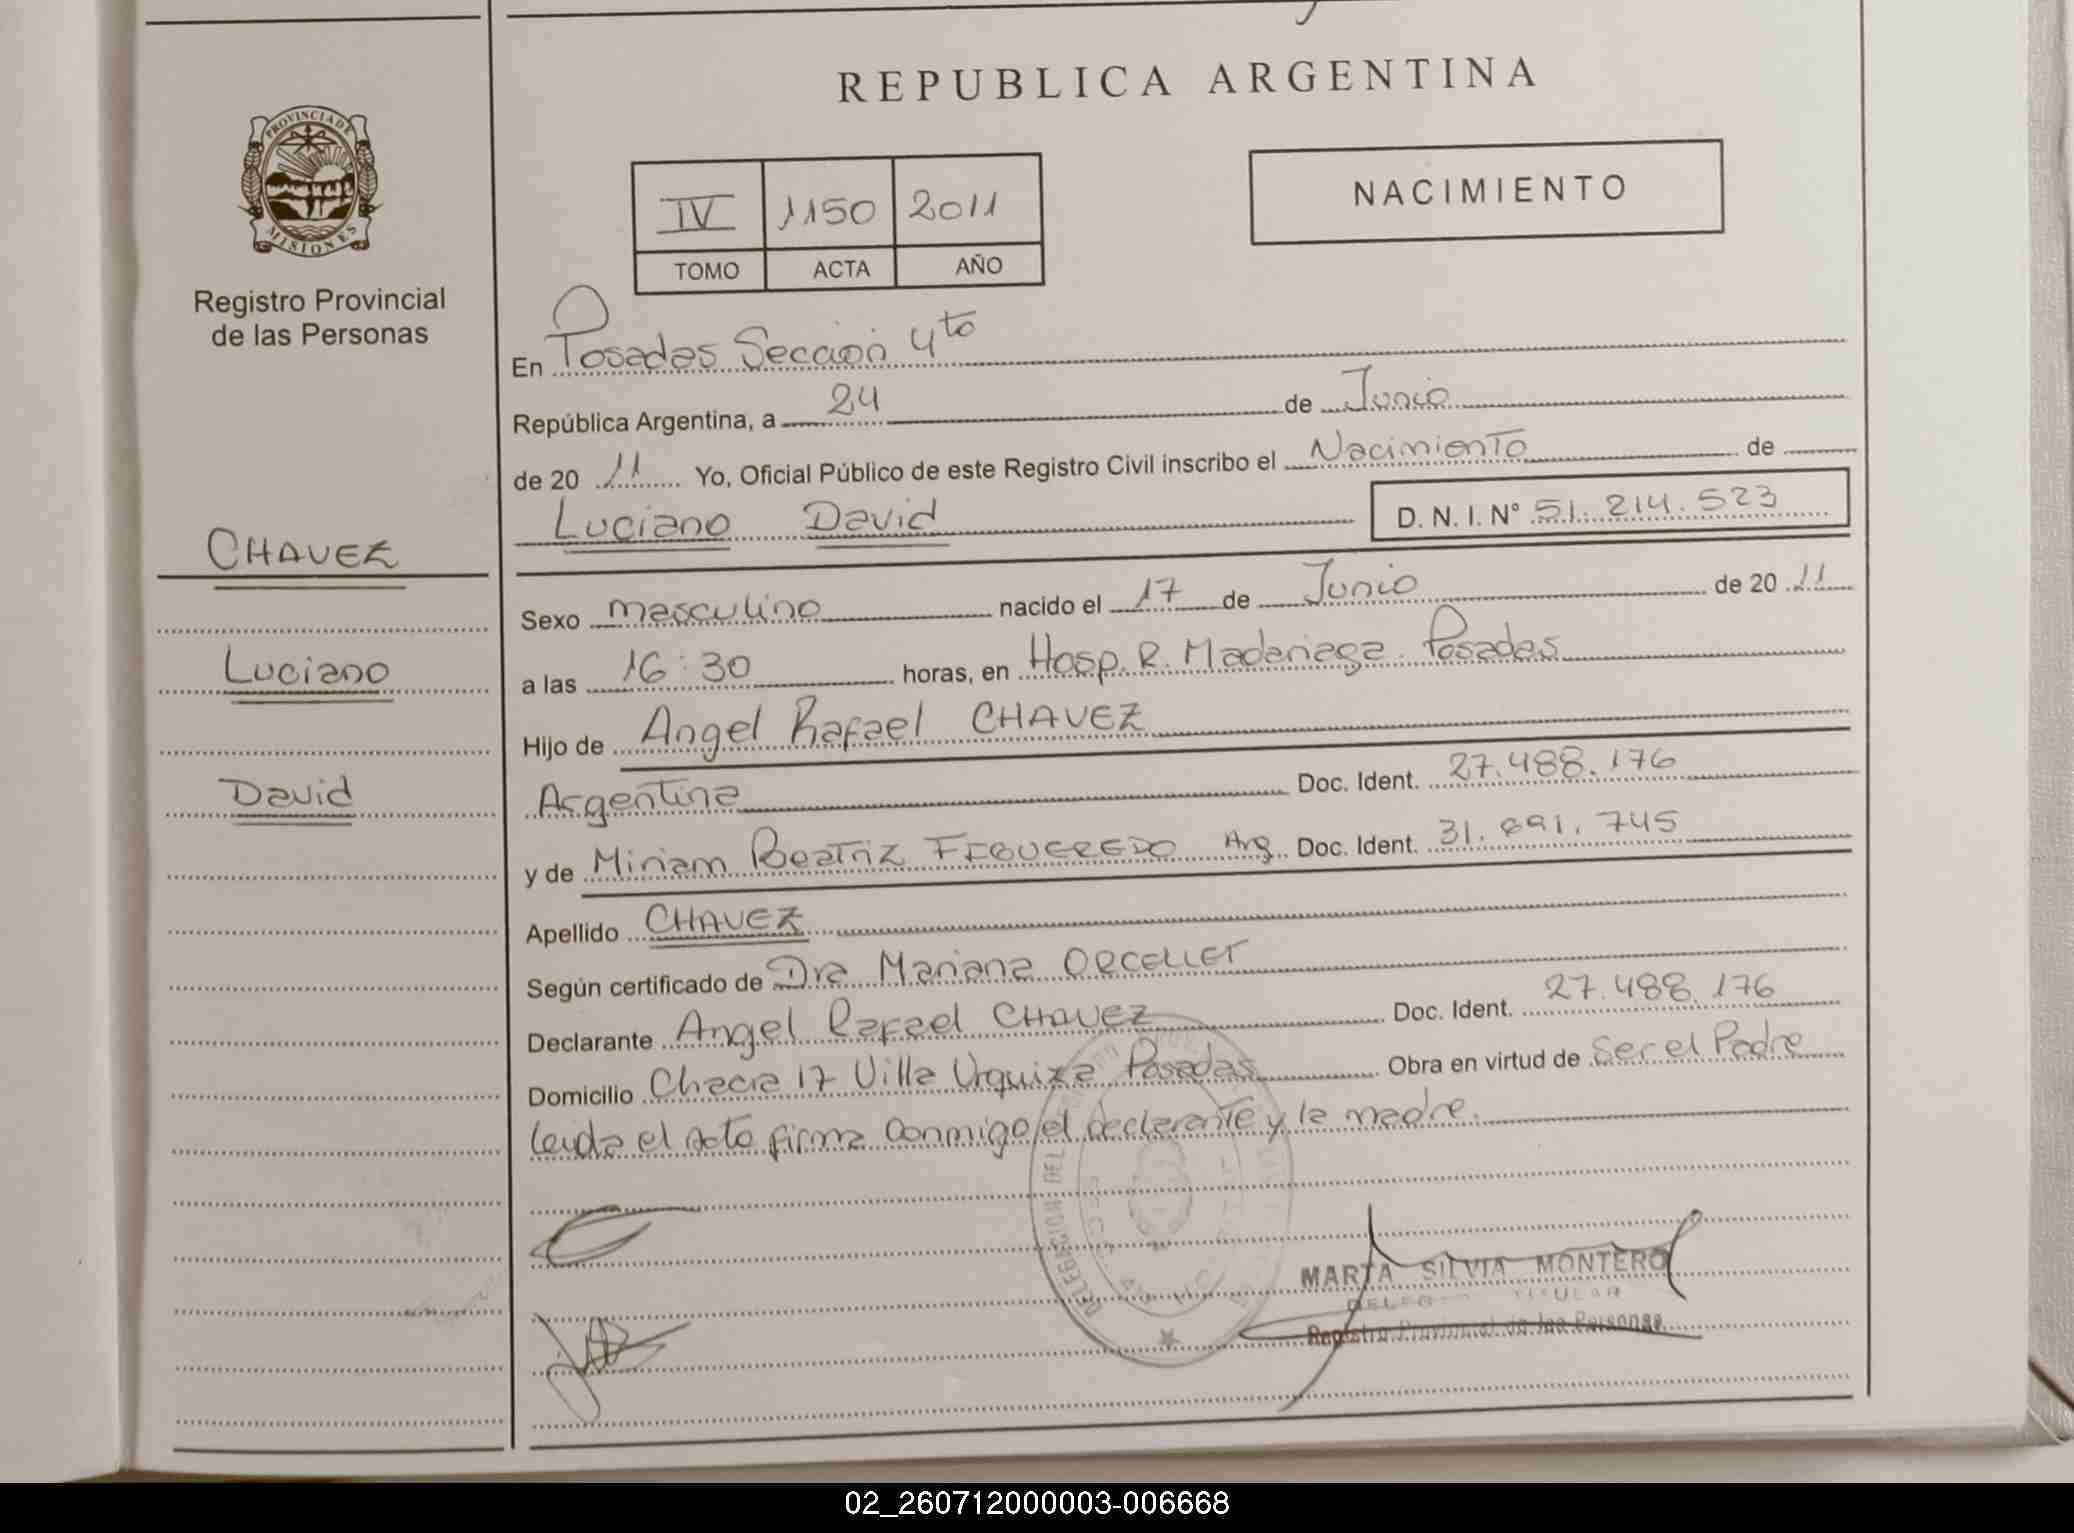 REPUBLICA ARGENTINA
PROVINCIA DE
MISIONES
Registro Provincial
de las Personas
NACIMIENTO
IV 1150 2011
TOMO ACTA AÑO
En Posadas Sección 4to
República Argentina, a 24 de Junio
de 2011 Yo, Oficial Público de este Registro Civil inscribo el Nacimiento de
Luciano David D. N. I. N° 51.214.523
CHAVEZ
Luciano
David
Sexo masculino nacido el 17 de Junio de 2011
a las 16:30 horas, en Hosp. R. Madariaga. Posadas
Hijo de Angel Rafael CHAVEZ
Argentina Doc. Ident. 27.488.176
y de Miriam Beatriz FIGUEREDO Arg. Doc. Ident. 31.891.745
Apellido CHAVEZ
Según certificado de Dra Mariana ORCELLET
Declarante Angel Rafael CHAVEZ Doc. Ident. 27.488.176
Domicilio Chacra 17 Villa Urquiza Posadas Obra en virtud de Ser el Padre
Leida el acta firma conmigo el declarante y la madre.
DELEGACION DEL
MARTA SILVIA MONTERO
TITULAR
Registro Provincial de las Personas
02_260712000003-006668